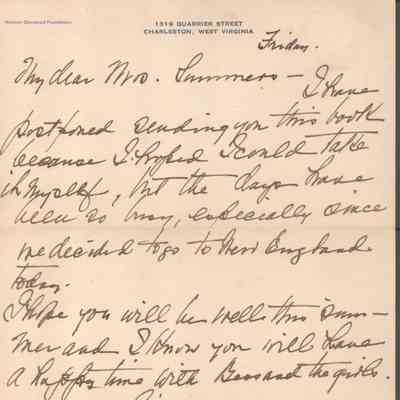 1319 QUARRIER STREET
CHARLESTON, WEST VIRGINIA
Friday.
My dear Mrs. Summers — I have
postponed sending you this book
because I hoped I could take
it myself, but the days have
been so busy, especially since
we decided to go to New England
today.
I hope you will be well this sum-
mer and I know you will have
a happy time with Bess and the girls.